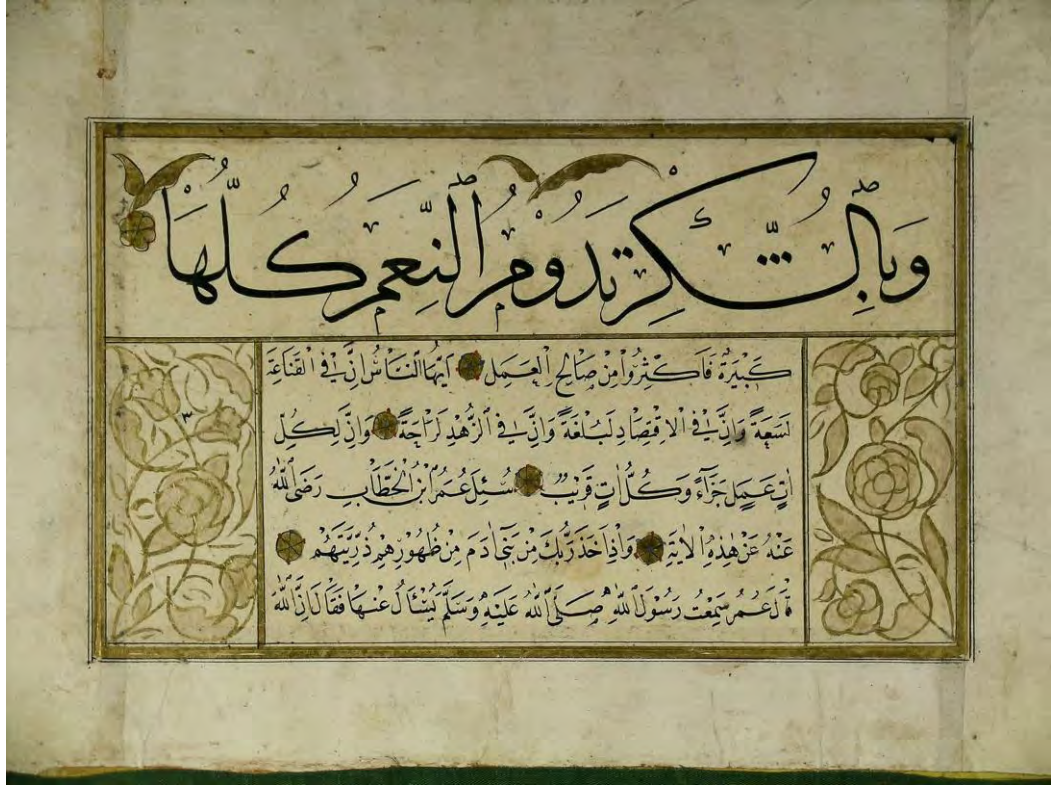 وَبِالشُّكْرِ تَدُومُ النِّعَمُ كُلُّهَا
كَبِيرَةٌ فَاَكْثِرُوا مِنْ صَالِحِ الْعَمَلِ اَيُّهَا النَّاسُ اِنَّ فِي الْقَنَاعَةِ
لَسَعَةً وَاِنَّ فِي الْاِقْتِصَادِ لَبُلْغَةً وَاِنَّ فِي الزُّهْدِ لَرَاحَةً وَاِنَّ لِكُلِّ
عَمَلٍ جَزَاءً وَكُلُّ اٰتٍ قَرِيبٌ سُئِلَ عُمَرُ ابْنُ الْخَطَّابِ رَضِيَ اللّٰهُ
عَنْهُ عَنْ هٰذِهِ الْاٰيَةِ وَاِذْ اَخَذَ رَبُّكَ مِنْ بَنِي اٰدَمَ مِنْ ظُهُورِهِمْ ذُرِّيَّتَهُمْ
قَالَ عُمَرُ سَمِعْتُ رَسُولَ اللّٰهِ صَلَّى اللّٰهُ عَلَيْهِ وَسَلَّمَ يُسْئَالُ عَنْهَا فَقَالَ اِنَّ اللّٰهَ